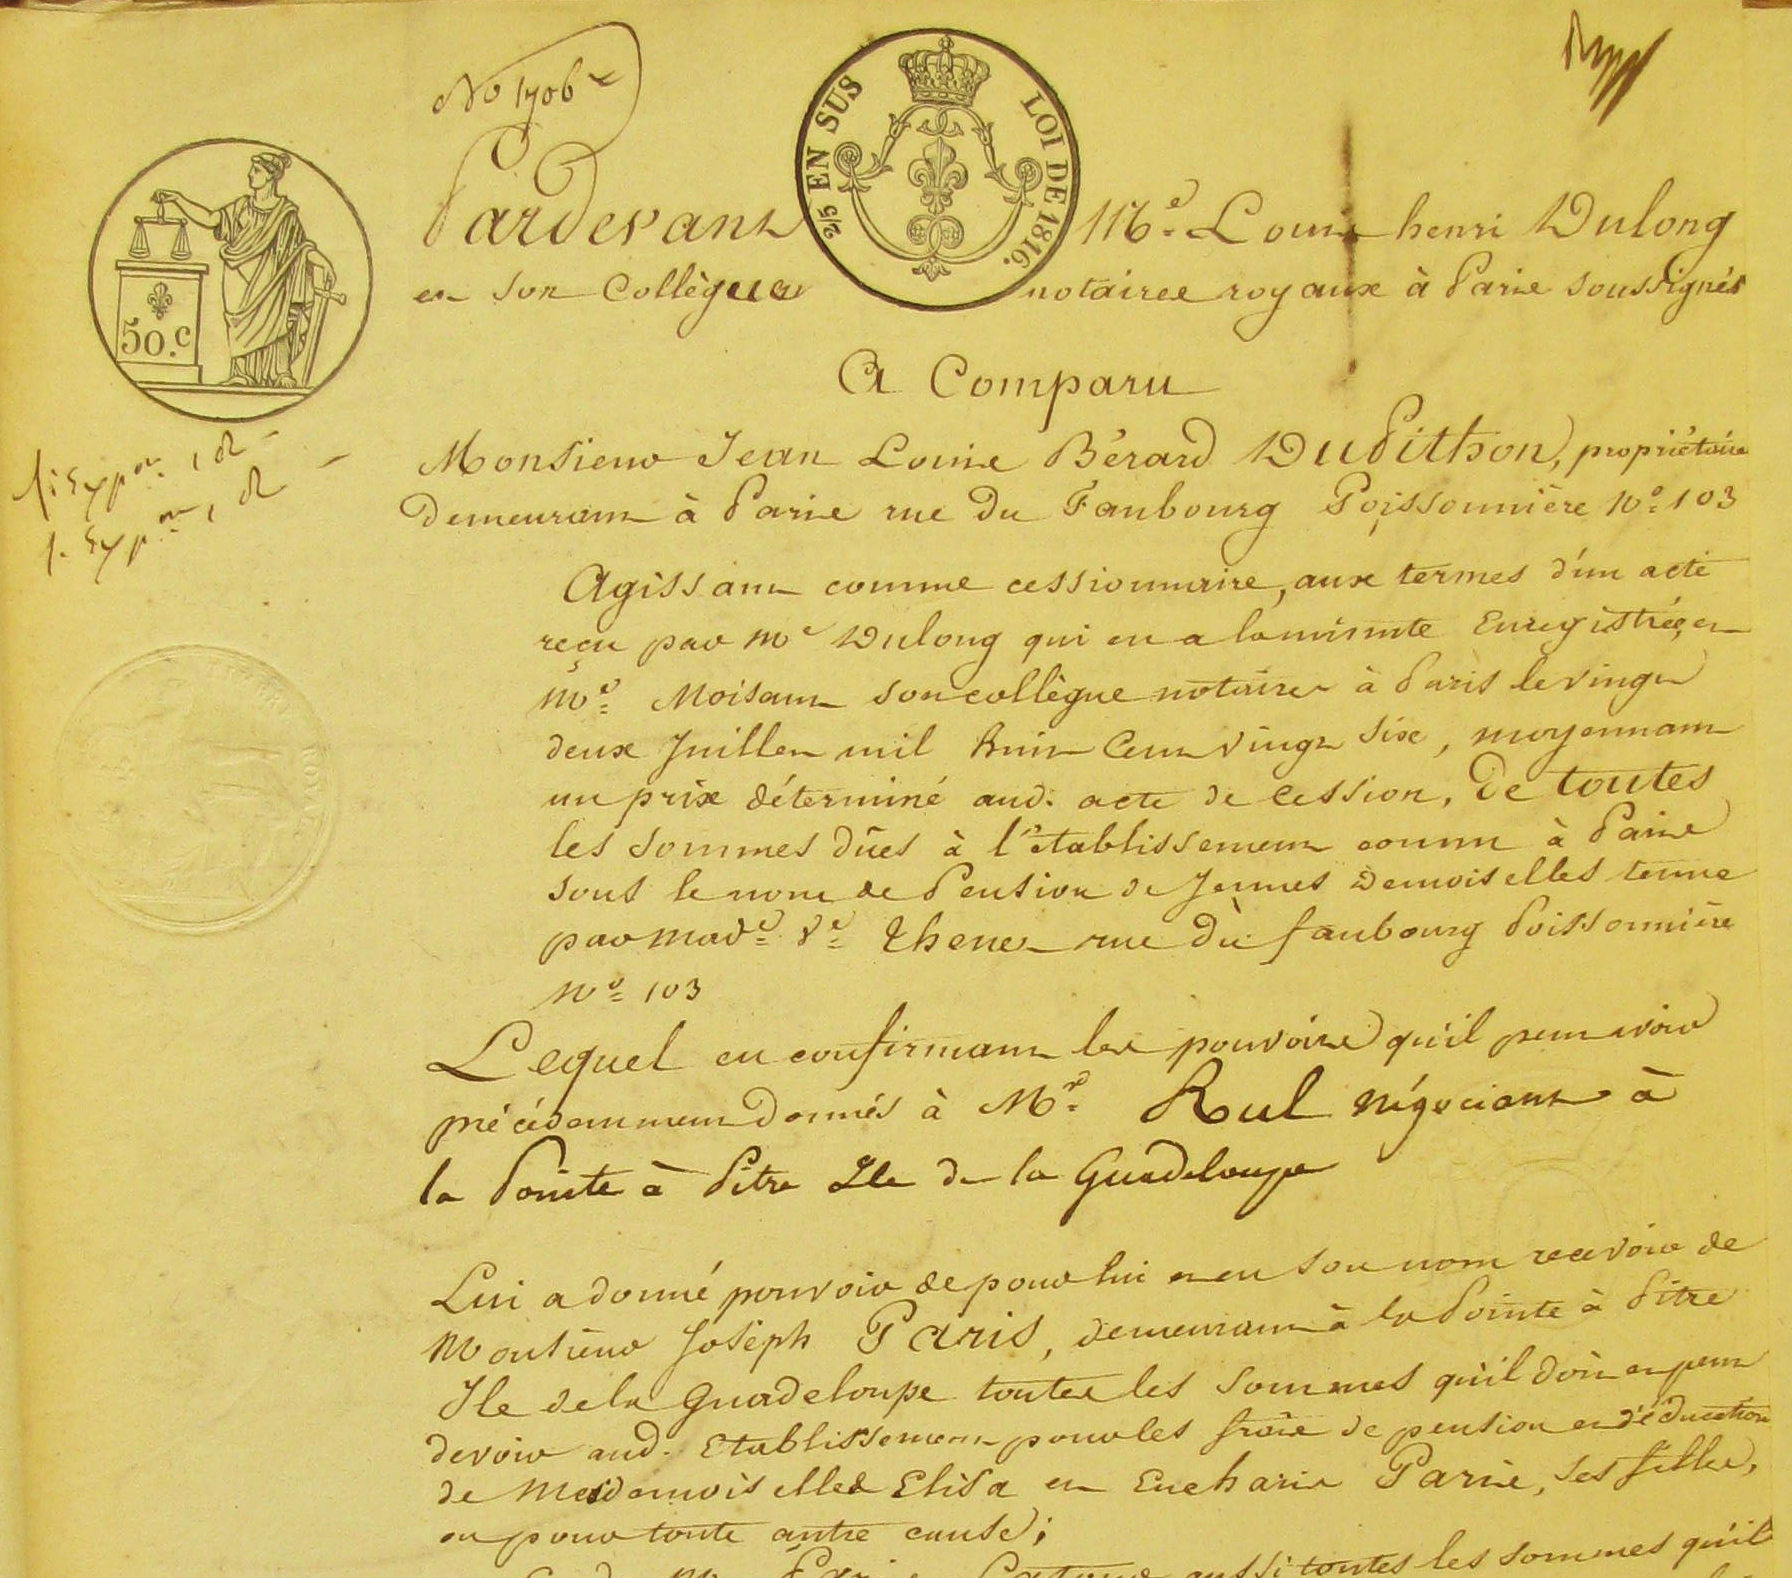 No 1706
2/5 EN SUS LOI DE 1816.
50.c
Pardevant Me. Louis henri Dulong
et son Collègue notaires royaux à Paris soussignés
A Comparu
Monsieur Jean Louis Bérard DuPithon, propriétaire
demeurant à Paris rue du Faubourg Poissonnière No. 103
Agissant comme cessionnaire, aux termes d'un acte
reçu par Me Dulong qui en a la minute Enregistrée, et
Me. Moisant son collègue notaires à Paris le vingt
deux Juillet mil huit Cent vingt six, moyennant
un prix déterminé aud. acte de Cession, De toutes
les sommes dûes à l'établissement connu à Paris
sous le nom de Pension de Jeunes Demoiselles tenue
par made. Ve. Thenet rue du faubourg Poissonnière
No. 103
Lequel en confirmant les pouvoirs qu'il peut avoir
précédemment donnés à Mr. Rul négociant à
la Pointe à Pitre Ile de la Guadeloupe
Lui a donné pouvoir de pour lui et en son nom recevoir de
Monsieur Joseph Paris, demeurant à la Pointe à Pitre
Ile de la Guadeloupe toutes les sommes qu'il doit et peut
devoir aud. Etablissement pour les frais de pension et d'éducation
de Mesdemoiselles Elisa et Eucharis Paris, ses filles,
ou pour toute autre cause;
aussi toutes les sommes qu'il